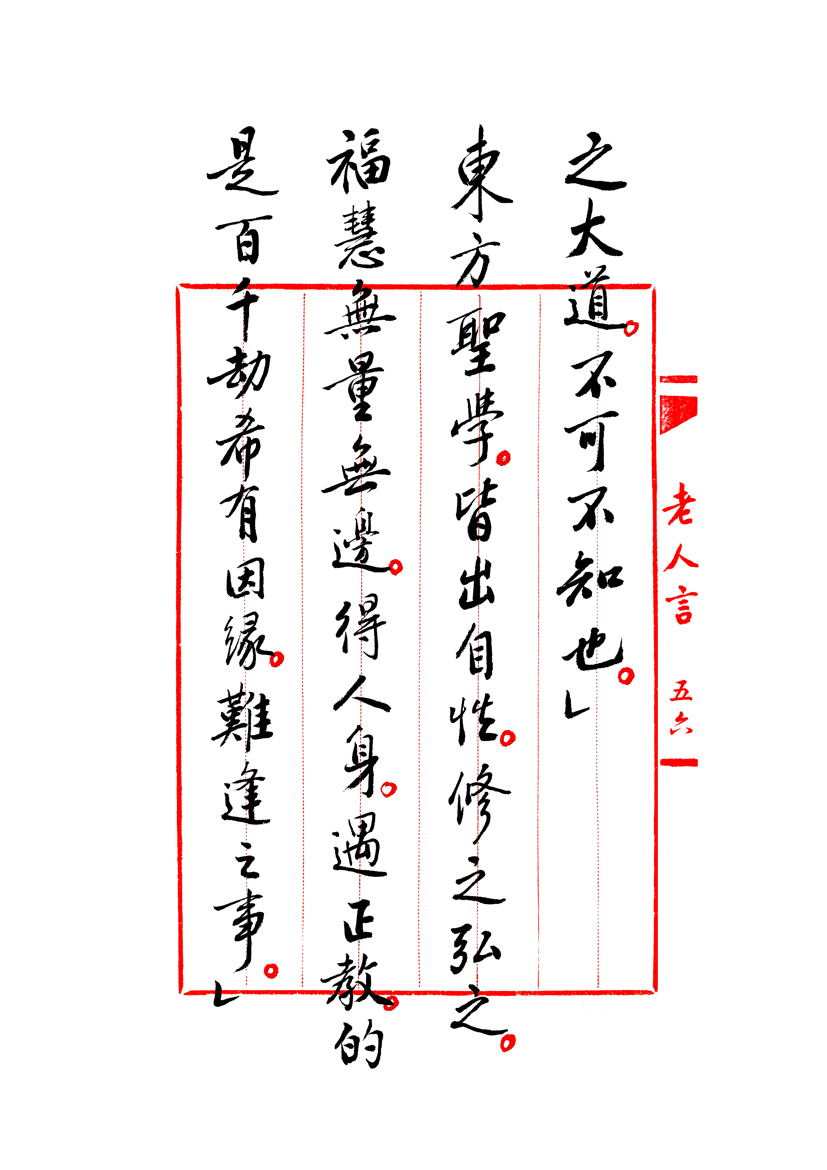 老人言 五六
之大道。不可不知也。」
東方聖學。皆出自性。修之弘之。
福慧無量無邊。得人身。遇正教。的
是百千劫希有因緣。難逢之事。」